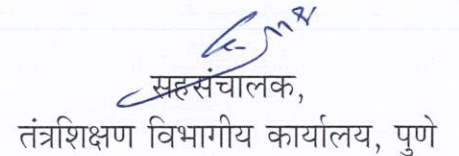 सहसंचालक,
तंत्रशिक्षण विभागीय कार्यालय, पुणे